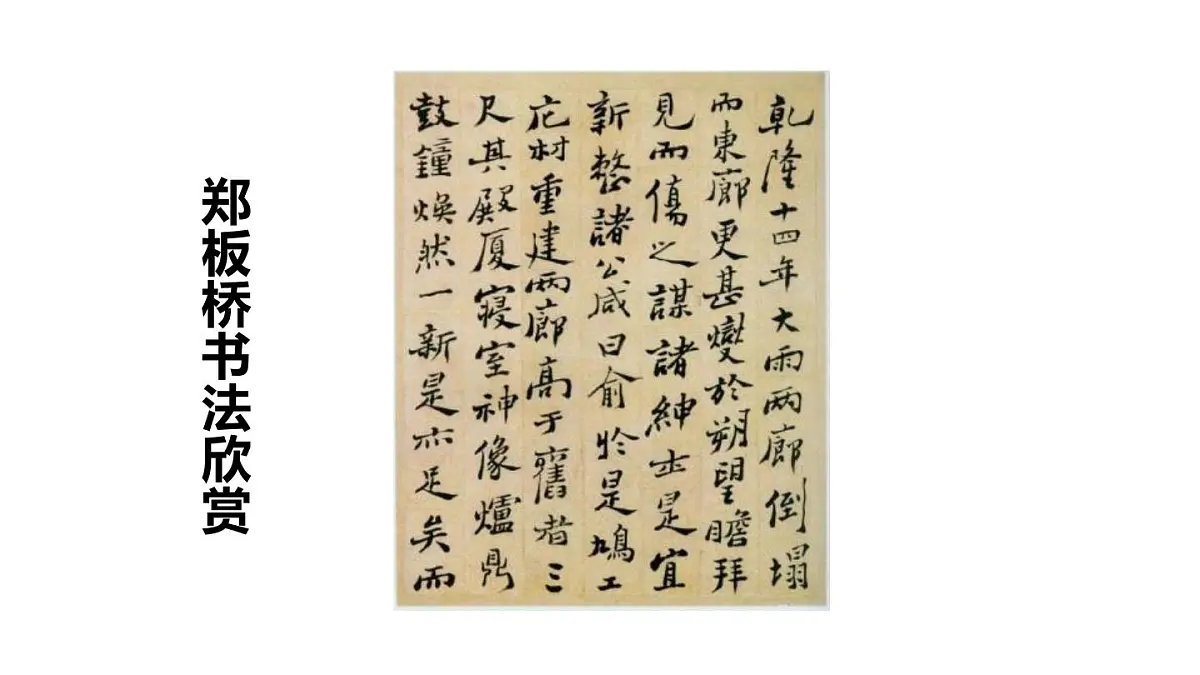 郑板桥书法欣赏
乾隆十四年大雨两廊倒塌
而東廊更甚變於朔望瞻拜
見而傷之謀諸紳士是宜
新整諸公咸曰俞於是鳩工
庀材重建两廊高于舊者三
尺其殿厦寝室神像爐鼎
鼓鐘焕然一新是亦足矣而